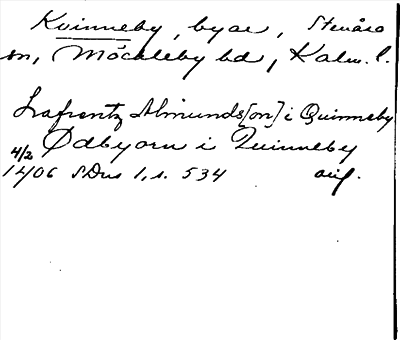 Kvinneby, byar, Stenåsa
sn, Möckleby hd, Kalm. l.
Lafrentz Almunds[on] i Quinneby
Ødbyorn i Quinneby
4/2
1406 SDns 1, s. 534 avf.